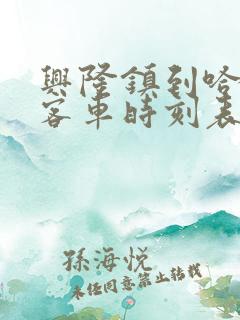 興隆鎮到哈
客車時刻表
孫海悅
未經同意禁止轉載